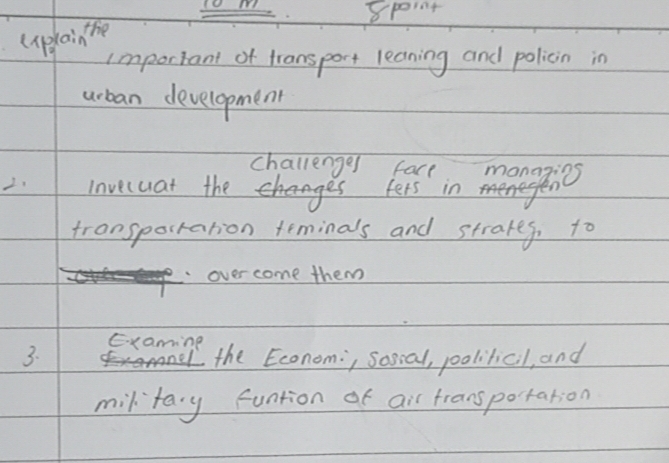 10 m. 8 point
explain the
important of transport leaning and policin in
urban development
challenges face managing
2. Invecuat the changes fets in menegen
transportation teminals and strateg, to
overcome them
Examine
3. the Economi, sosial, political, and
military funtion of air transportation